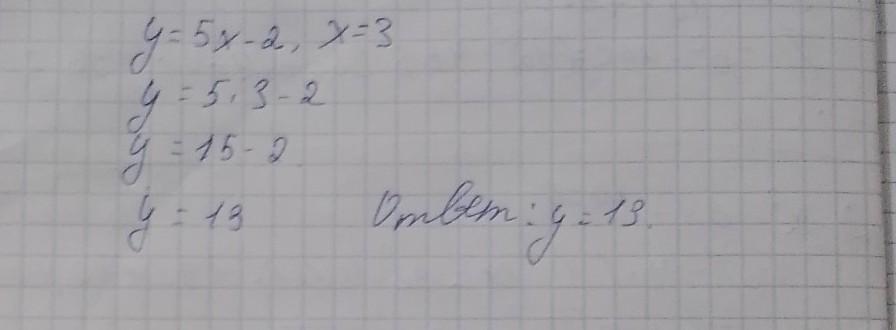 y = 5x - 2, x = 3
y = 5 · 3 - 2
y = 15 - 2
y = 13 Ответ: y = 13.